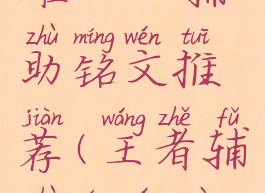 zhù míng wén tuī
助铭文推
jiàn wáng zhě fǔ
荐(王者辅